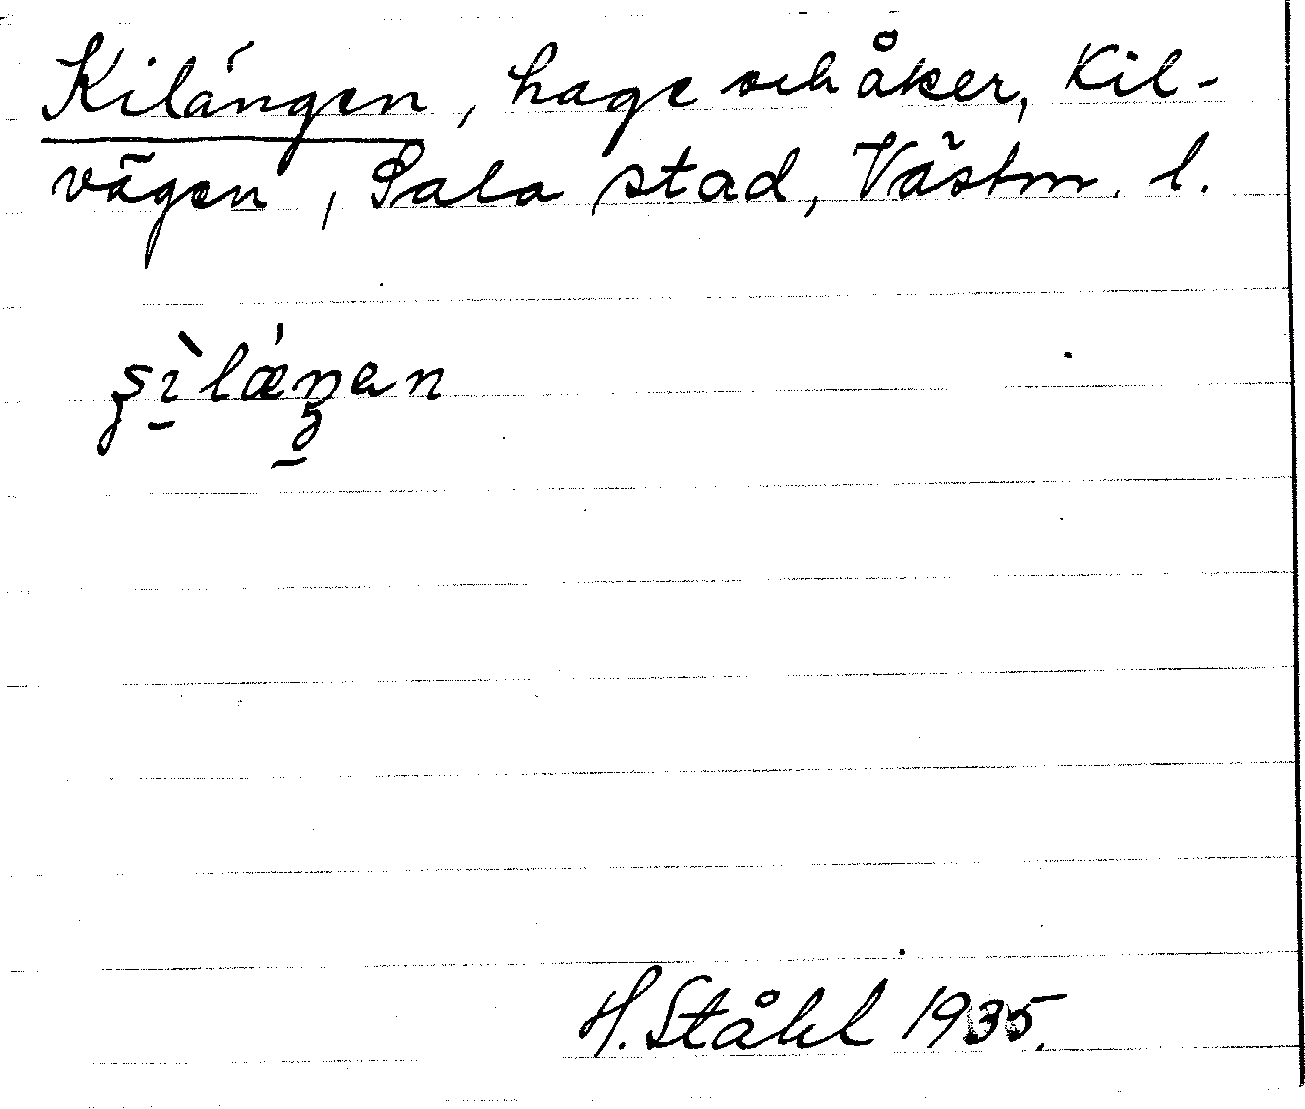 Kilängen, hage och åker, Kil-
vägen, Sala stad, Västm. l.
H. Ståhl 1935.